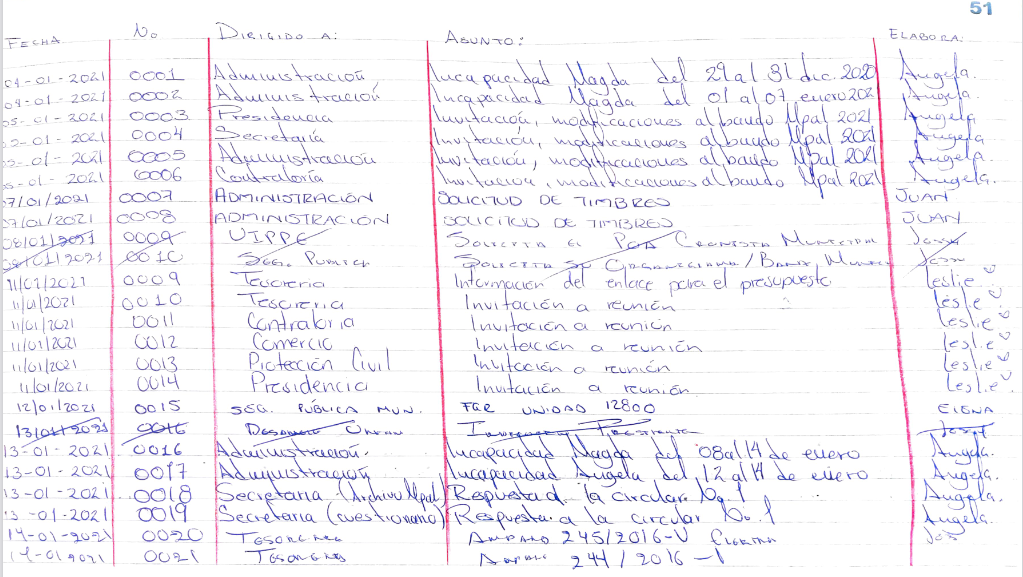 51
FECHA No DIRIGIDO A: ASUNTO: ELABORA:
04-01-2021 0001 Administración Incapacidad Magda del 29 al 31 dic. 2020 Angela.
04-01-2021 0002 Administración Incapacidad Magda del 01 al 07 enero 202 Angela.
05-01-2021 0003 Presidencia Invitación, modificaciones al bando Mpal 2021 Angela
-01-2021 0004 Secretaría Invitación, modificaciones al bando Mpal 2021 Angela
-01-2021 0005 Administración Invitación, modificaciones al bando Mpal 2021 Angela.
-01-2021 0006 Contraloría Invitación, modificaciones al bando Mpal 2021 Angela.
07/01/2021 0007 ADMINISTRACIÓN SOLICITUD DE TIMBRES JUAN
07/01/2021 0008 ADMINISTRACIÓN SOLICITUD DE TIMBRES JUAN
08/01/2021 0009 UIPPE SOLICITA EL CRONISTA MUNICIPAL
08/01/2021 0010 SEG. PUBLICA SOLICITA SU ORGANIGRAMA/
11/01/2021 0009 Tesoreria Información del enlace para el presupuesto leslie
11/01/2021 0010 Tesoreria Invitación a reunión leslie
11/01/2021 0011 Contraloria Invitación a reunión leslie
11/01/2021 0012 Comercio Invitación a reunión leslie
11/01/2021 0013 Protección Civil Invitación a reunión leslie
11/01/2021 0014 Presidencia Invitación a reunión leslie
12/01/2021 0015 SEG. PÚBLICA MUN. FGR UNIDAD 12800 ELENA
13/01/2021 0016
13-01-2021 0016 Administración. Incapacidad Magda del 08 al 14 de enero Angela.
13-01-2021 0017 Administración Incapacidad Angela del 12 al 14 de enero Angela.
13-01-2021 0018 Secretaria (Archivo Mpal) Respuesta a la circular No. 1 Angela.
13-01-2021 0019 Secretaria (cuestionario) Respuesta a la circular No. 1 Angela.
14-01-2021 0020 AMPARO 245/2016-V
14-01-2021 0021 AMPARO 244/2016-